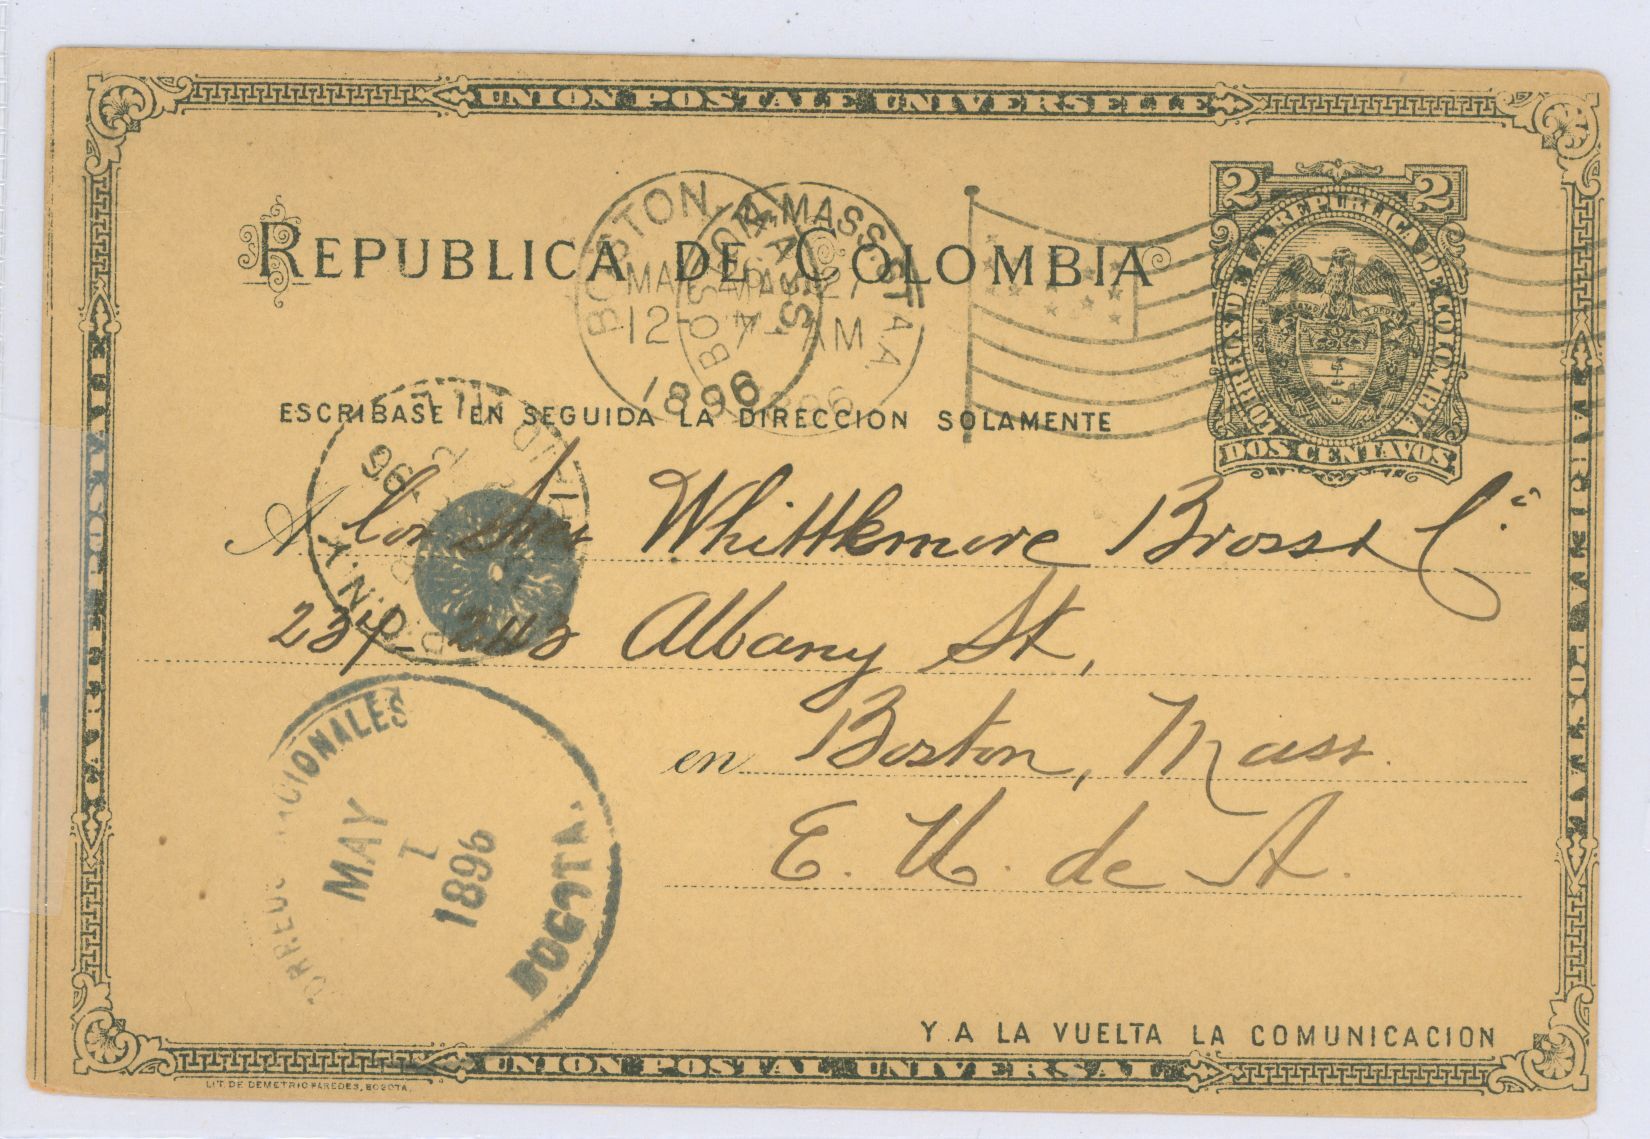 UNION POSTALE UNIVERSELLE
CARTE POSTALE
TARJETA POSTAL
2 2
CORREOS DE LA REPUBLICA DE COLOMBIA
DOS CENTAVOS
REPUBLICA DE COLOMBIA
BOSTON, MASS.
MAY 26
12
1896
BOSTON, MASS. STA. A.
MAY 27
7 AM
1896
ESCRIBASE EN SEGUIDA LA DIRECCION SOLAMENTE
A Whittkmore Bross & Cª
237-243 Albany St,
en Boston, Mass.
E. U. de A.
96
N.Y.
CORREOS NACIONALES
MAY
7
1896
BOGOTA.
Y A LA VUELTA LA COMUNICACION
UNION POSTAL UNIVERSAL
LIT. DE DEMETRIO PAREDES, BOGOTA.